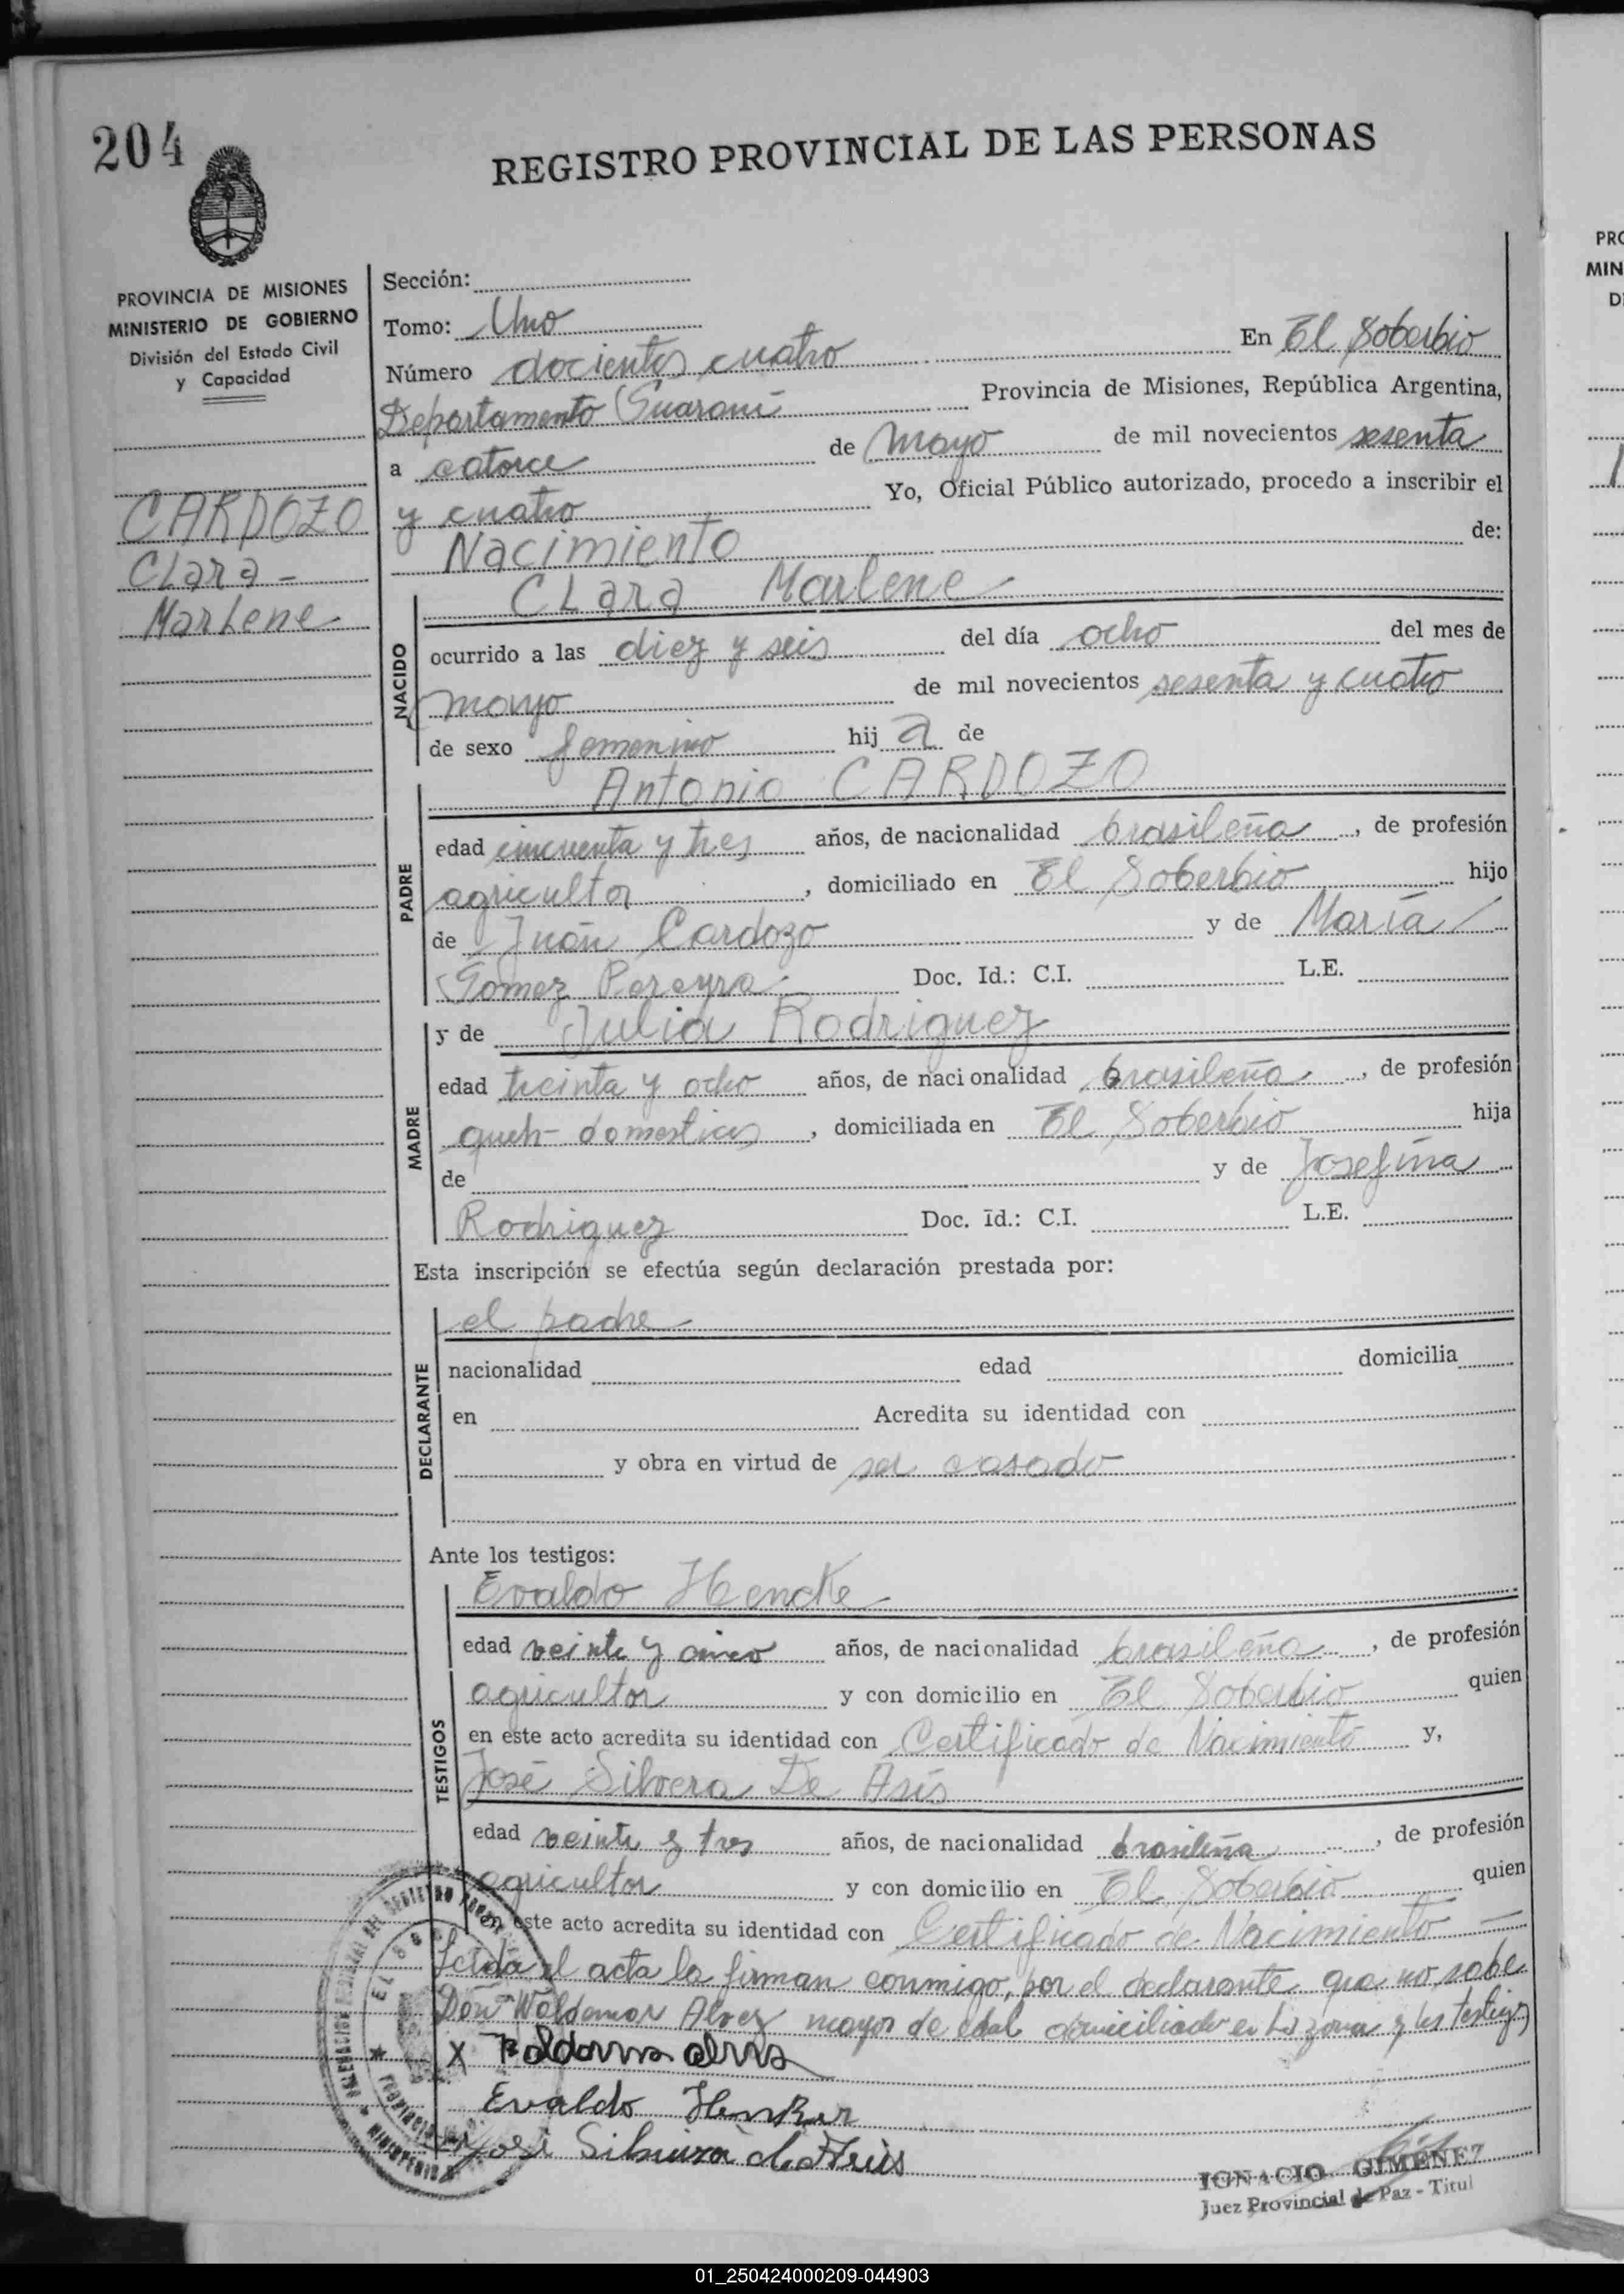 204
REGISTRO PROVINCIAL DE LAS PERSONAS
PROVINCIA DE MISIONES
MINISTERIO DE GOBIERNO
División del Estado Civil
y Capacidad
CARDOZO
Clara -
Marlene
Sección:
Tomo: Uno
Número docientos cuatro En El Soberbio
Departamento Guaraní Provincia de Misiones, República Argentina,
a catorce de Mayo de mil novecientos sesenta
y cuatro Yo, Oficial Público autorizado, procedo a inscribir el
Nacimiento de:
Clara Marlene
NACIDO
ocurrido a las diez y seis del día ocho del mes de
mayo de mil novecientos sesenta y cuatro
de sexo femenino hij a de
Antonio CARDOZO
PADRE
edad cincuenta y tres años, de nacionalidad brasileña, de profesión
agricultor, domiciliado en El Soberbio hijo
de Juán Cardozo y de María
Gomez Pereyra Doc. Id.: C.I. L.E.
y de Julia Rodriguez
MADRE
edad treinta y ocho años, de nacionalidad brasileña, de profesión
queh- domesticos, domiciliada en El Soberbio hija
de y de Josefina
Rodriguez Doc. Id.: C.I. L.E.
Esta inscripción se efectúa según declaración prestada por:
el padre
DECLARANTE
nacionalidad edad domicilia
en Acredita su identidad con
y obra en virtud de ser casado
Ante los testigos:
Evaldo Hencke
TESTIGOS
edad veinte y cinco años, de nacionalidad brasileña, de profesión
agricultor y con domicilio en El Soberbio quien
en este acto acredita su identidad con Certificado de Nacimiento y,
José Silvera De Asís
edad veinte y tres años, de nacionalidad brasileña, de profesión
agricultor y con domicilio en El Soberbio quien
en este acto acredita su identidad con Certificado de Nacimiento
Leida el acta la firman conmigo, por el declarante que no sabe
Don Waldemar Alvez mayor de edad domiciliado en la zona y los testigos
X
Evaldo Henker
IGNACIO GIMENEZ
Juez Provincial de Paz - Titul
PRO
MIN
D
01_250424000209-044903